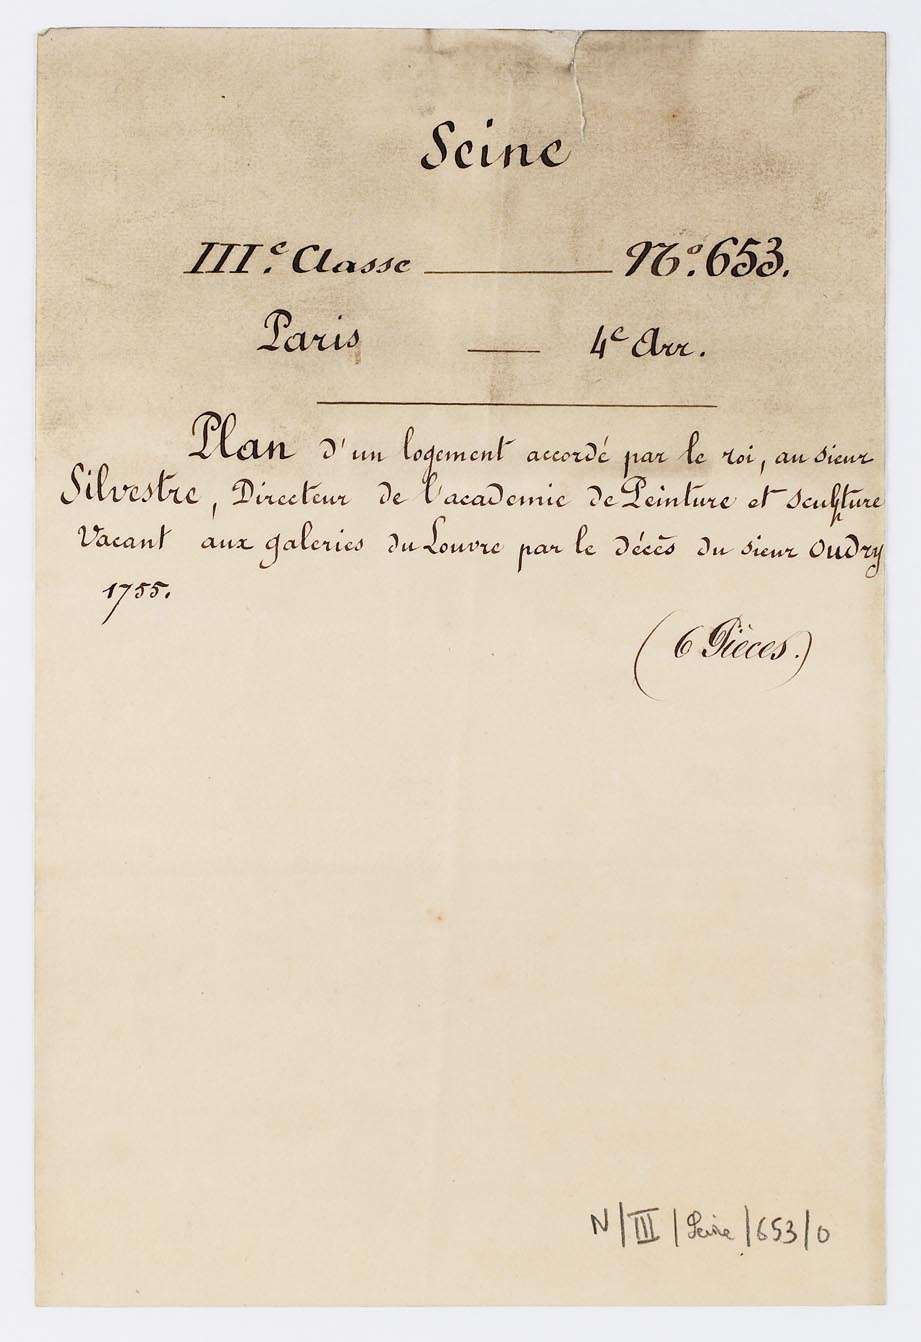 Seine
IIIe. Classe ——— No. 653.
Paris — 4e Arr.
Plan d'un logement accordé par le roi, au sieur
Silvestre, Directeur de l'academie de Peinture et sculpture
Vacant aux galeries du Louvre par le décès du sieur Oudry
1755.
(6 Pièces.)
N/III/Seine/653/0